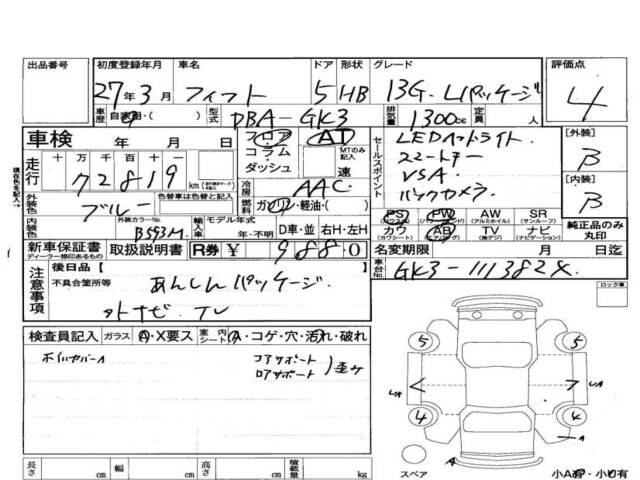 出品番号 初度登録年月 車名 ドア 形状 グレード 評価点
27年3月 フィット 5 HB 13G・Lパッケージ 4
車歴 自家用・( ) 型式 DBA-GK3 排気量 1300cc 定員 人
車検 年 月 日 フロア AT LEDヘッドライト [外装]
走行 十万千百十一 コラム MTのみ記入 セールスポイント スマートキー B
72819 km ダッシュ 速 VSA [内装]
現車色を記入→
冷房 AAC バックカメラ B
外装色 ブルー 色替車は色替と記入 燃料 ガソリン・軽油・( ) PS PW AW SR 純正品のみ丸印
(パワーウィンドウ) (アルミホイル) (サンルーフ)
外装カラーNo. B593M 輸入車 モデル年式 年・不明 D車・並 右H・左H カワ AB TV ナビ
(カワシート) (エアバッグ) (地デジ) (ナビゲーション)
新車保証書 取扱説明書 R券 ¥ 9880 名変期限 月 日迄
ディーラー捺印あるもの
注意事項 後日品〔 〕 車台No. GK3-1113824
不具合箇所等 あんしんパッケージ. ロック車
外ナビ. TV
検査員記入 ガラス A・X要ス 室内シート A・コゲ・穴・汚れ・破れ
コアサポート
ロアサポート 歪ケ
5 5
UA UA
4 4
A
A
スペア 小A有・小U有
長さ cm 幅 cm 高さ cm 積載量 kg